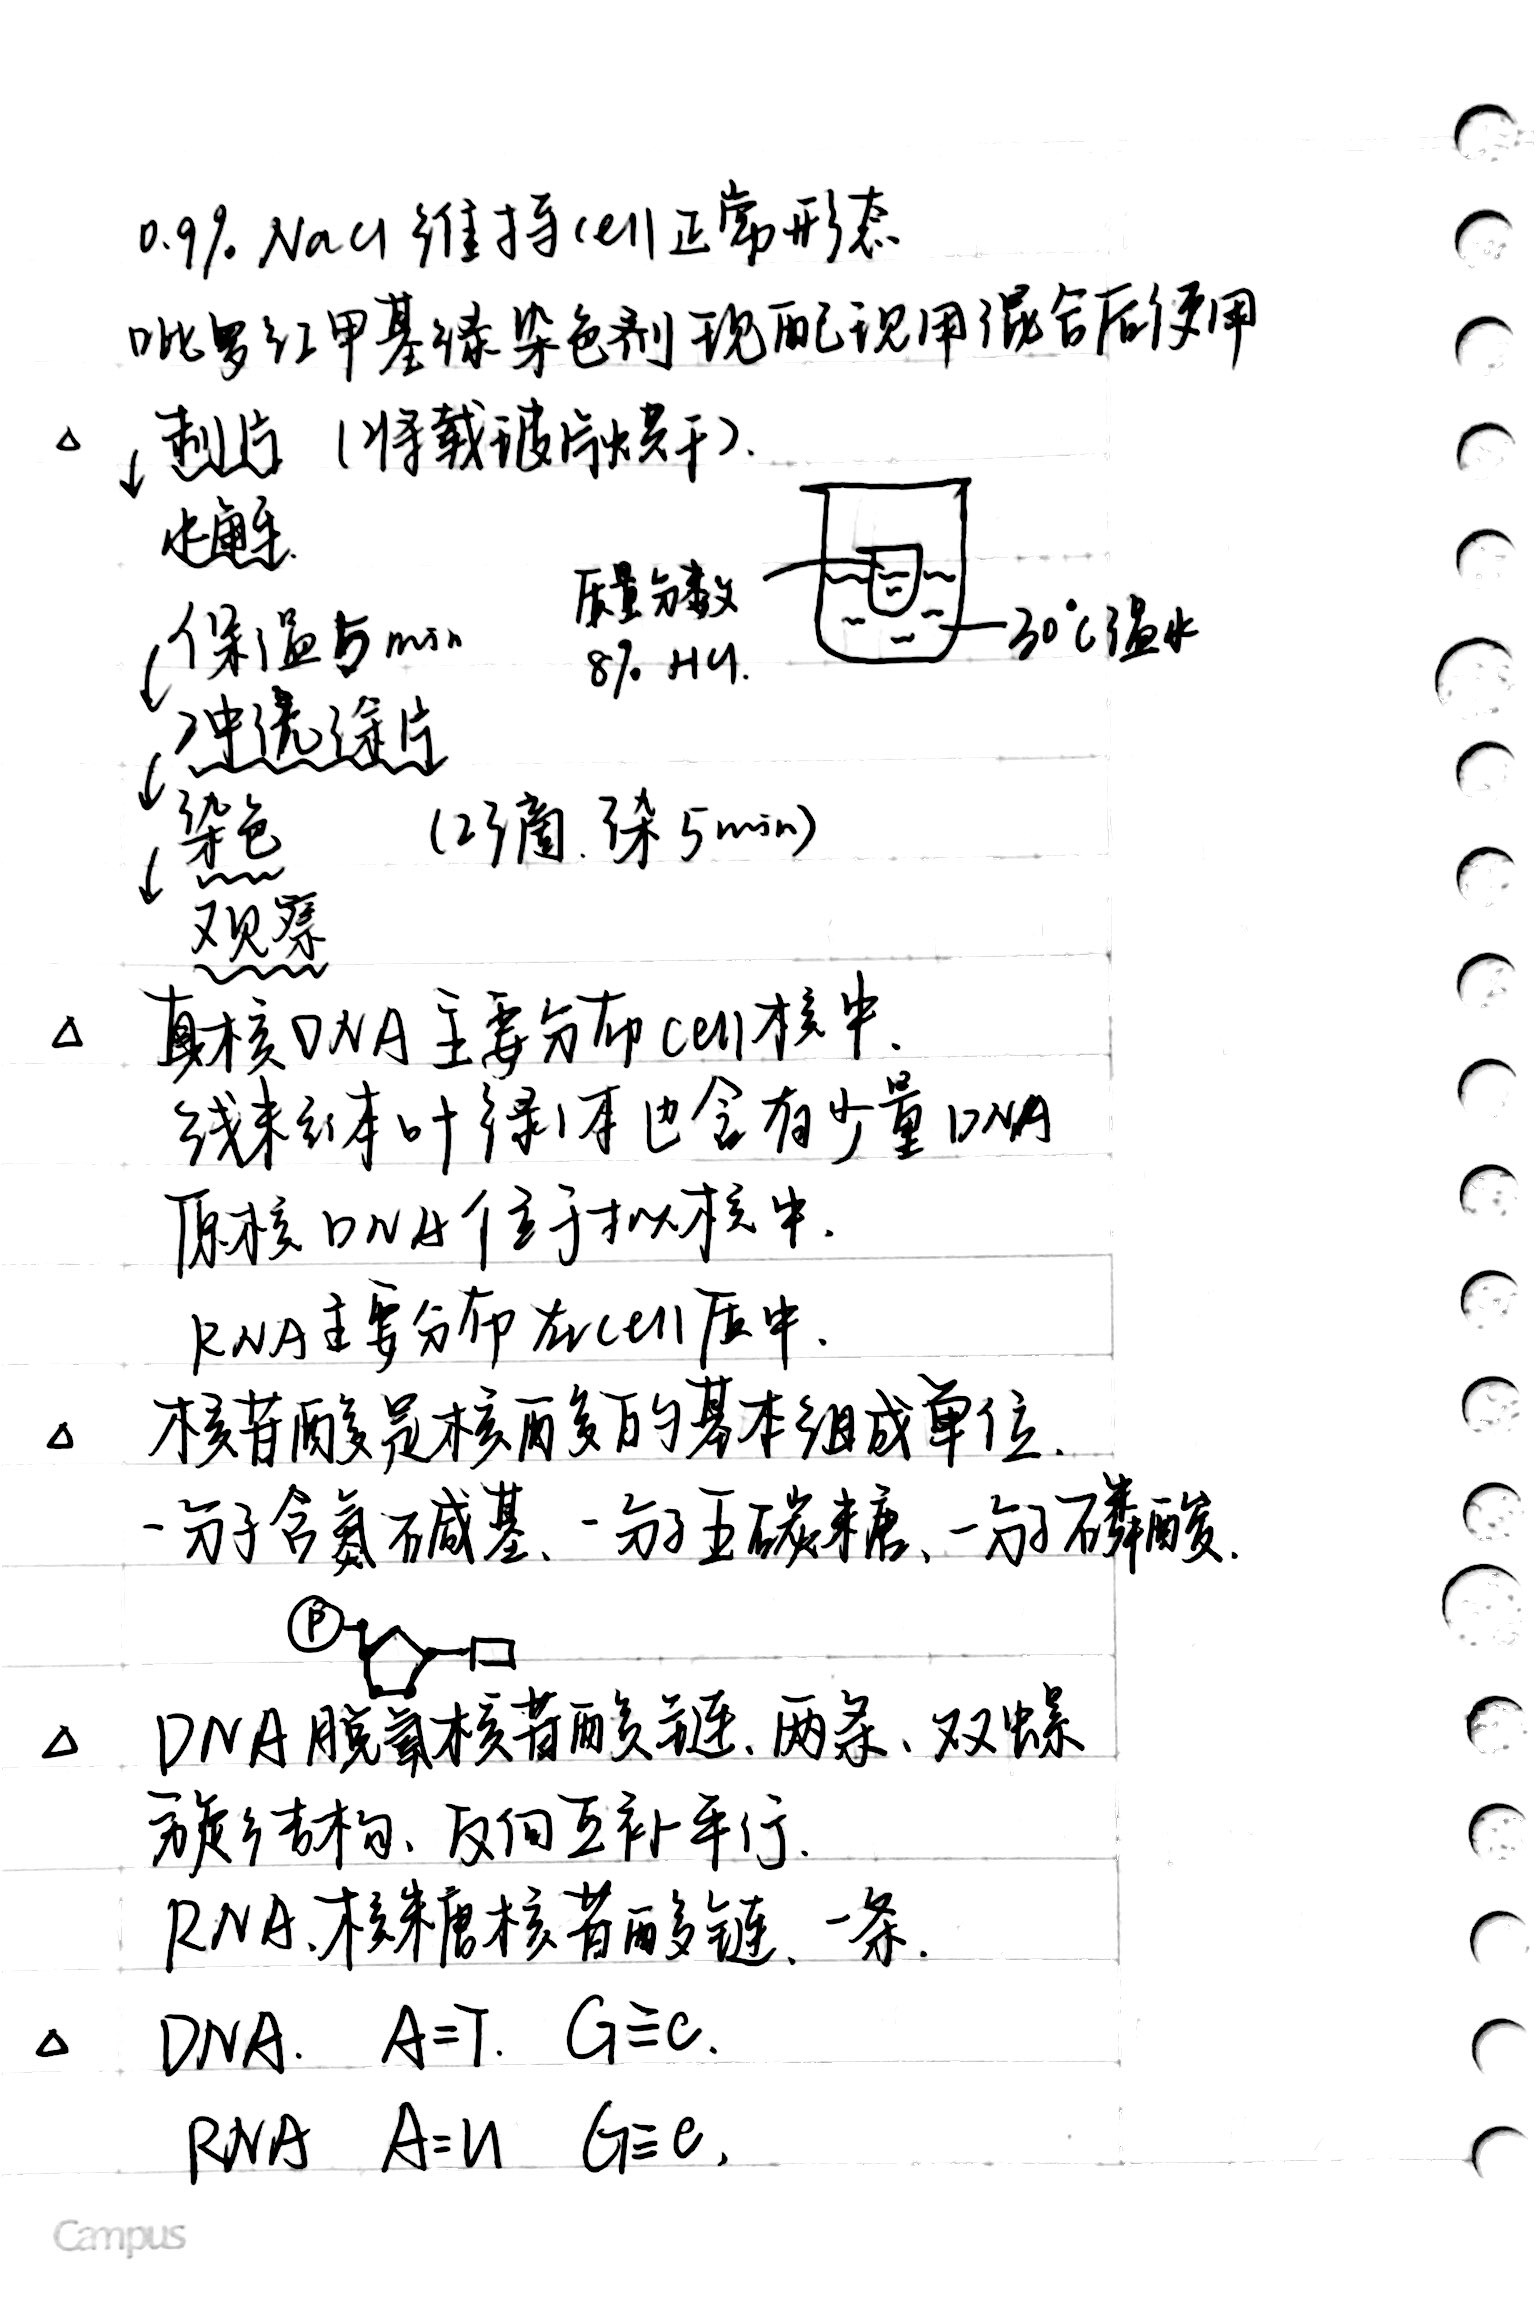 0.9% NaCl 维持cell正常形态
吡罗红甲基绿染色剂现配现用混合后使用
△ 制片 (将载玻片烘干).
↓
水解.
保温5min
质量分数
8% HCl.
30℃温水
↓
冲洗涂片
↓
染色 (2滴.染5min)
↓
观察
△ 真核DNA主要分布cell核中.
线粒体叶绿体也含有少量DNA
原核DNA位于拟核中.
RNA主要分布在cell质中.
△ 核苷酸是核酸的基本组成单位.
一分子含氮碱基、一分子五碳糖、一分子磷酸.
P
△ DNA脱氧核苷酸链、两条、双螺
旋结构、反向互补平行.
RNA、核糖核苷酸链、一条.
△ DNA. A=T. G≡C.
RNA A=U G≡C.
Campus